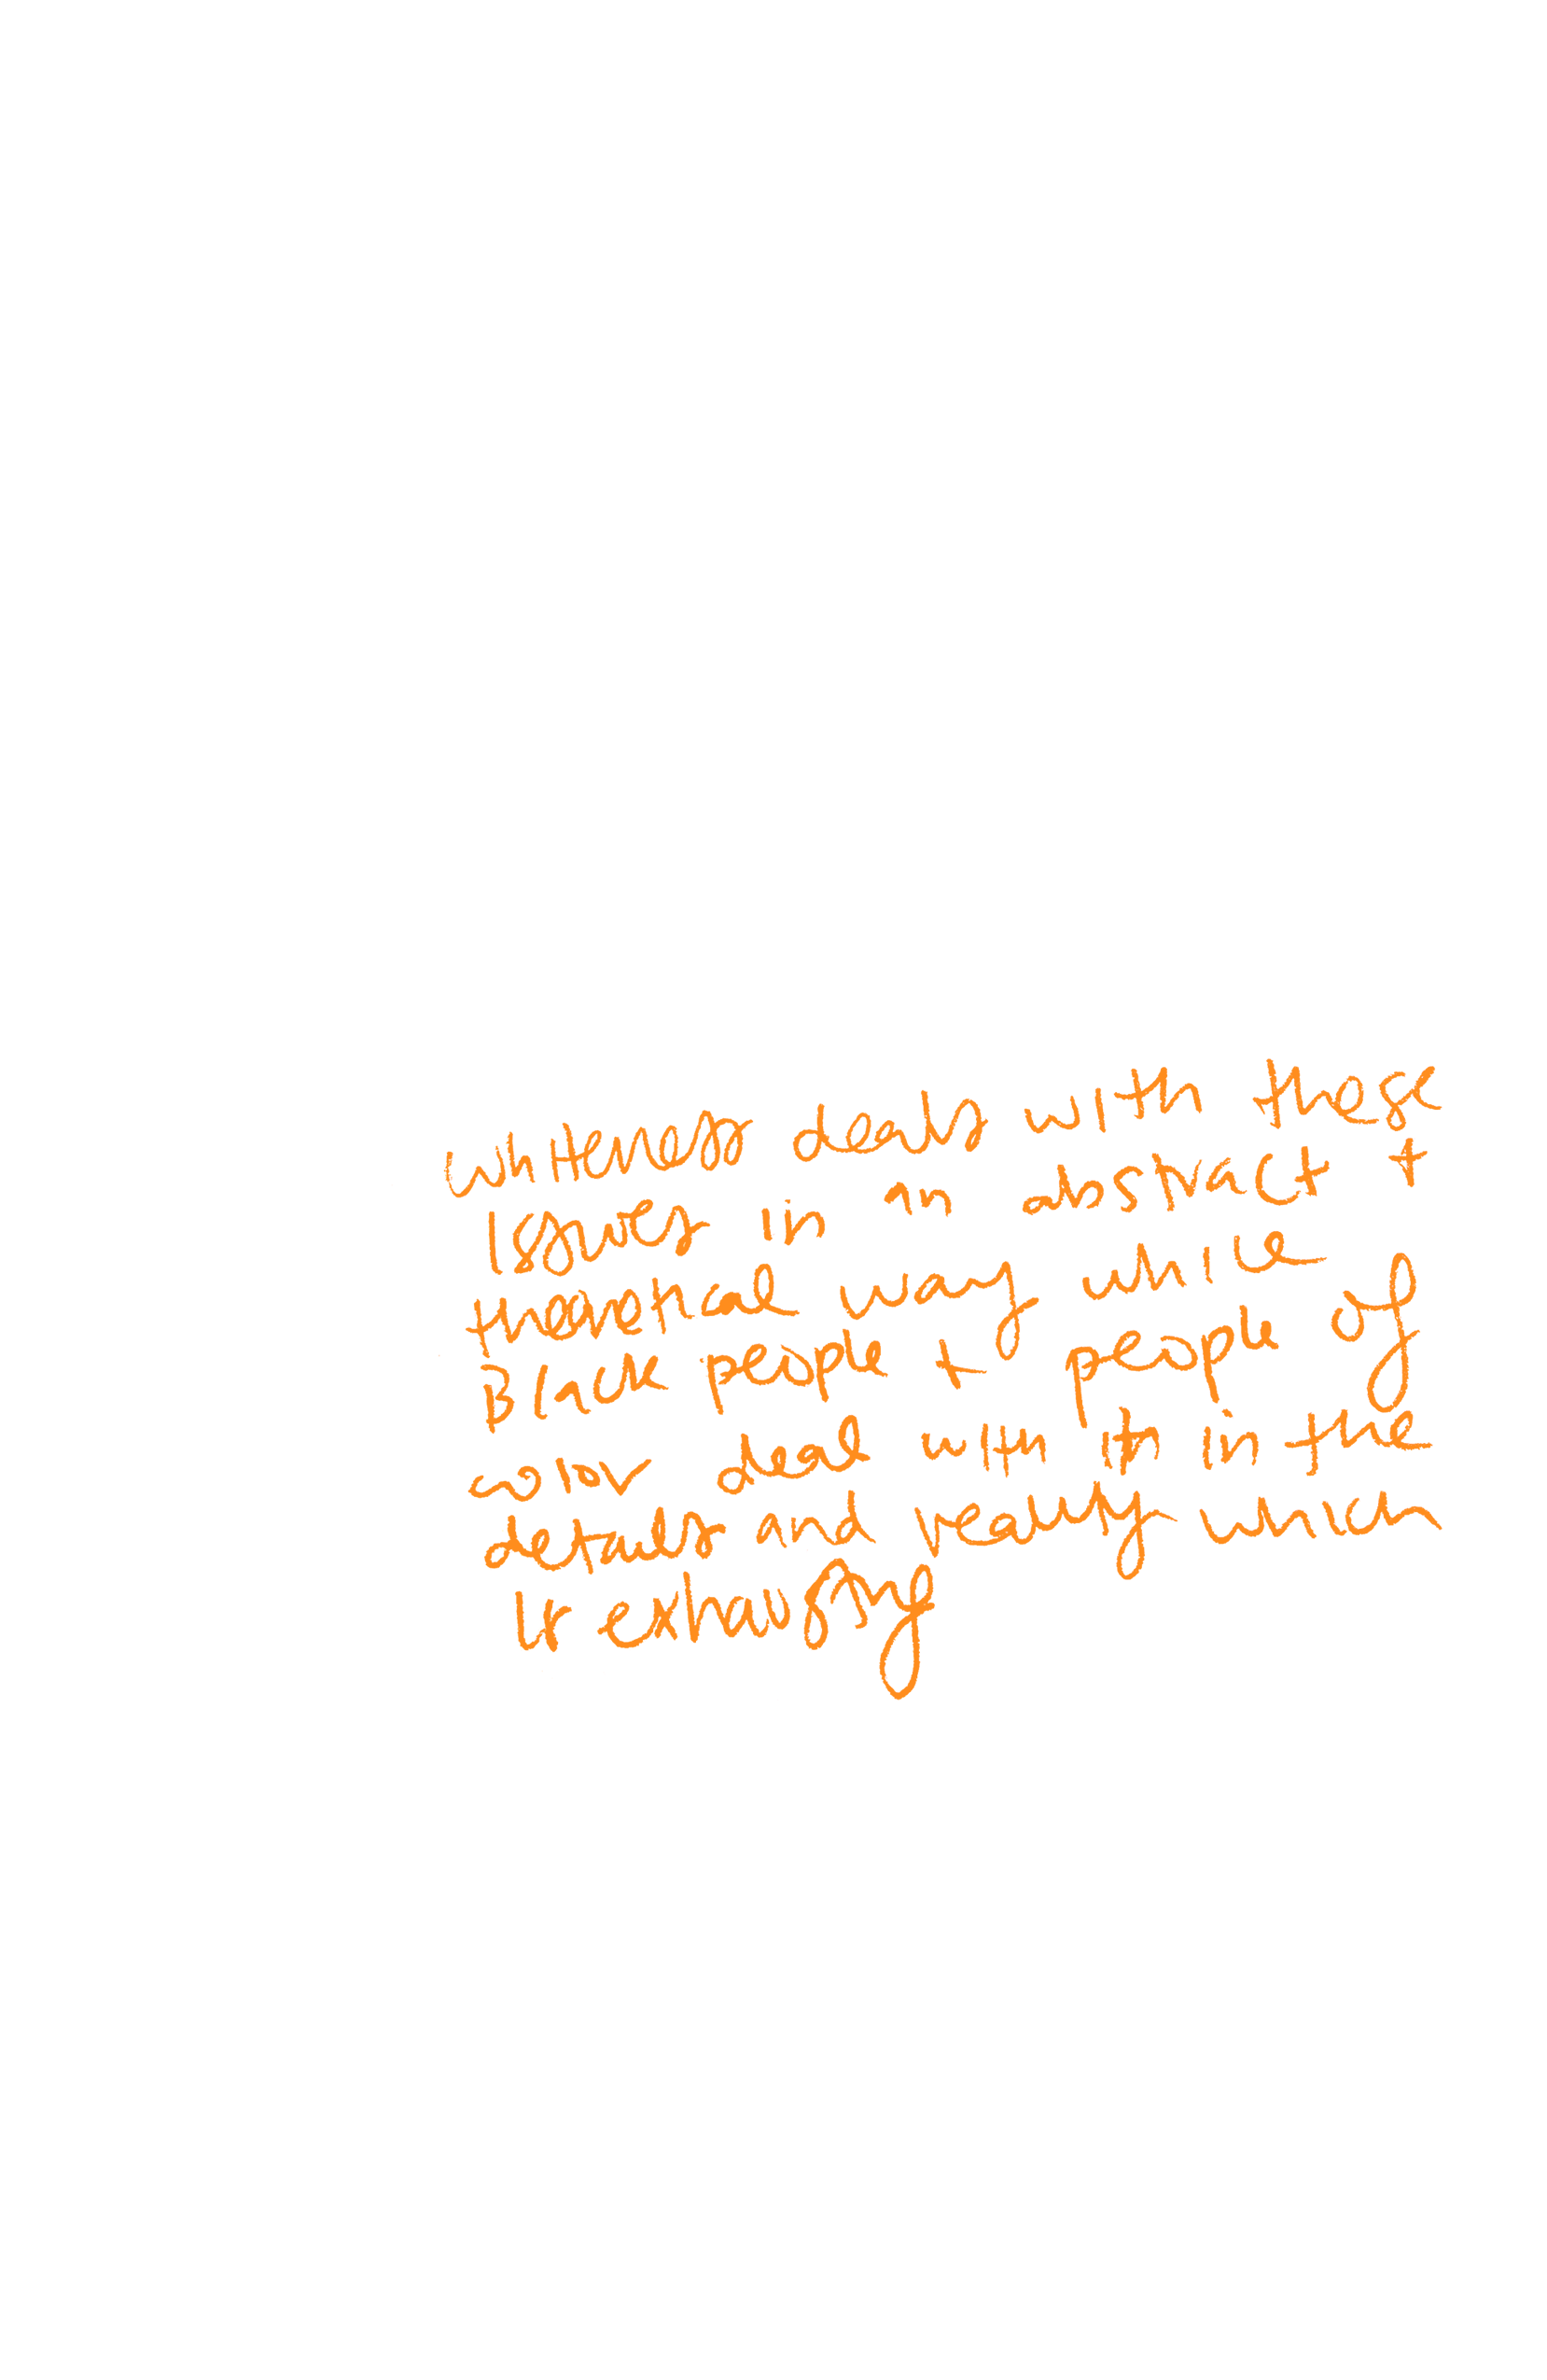 whiteness deals with these
issues in an abstract +
theoretical way while
Black people + people of
color deal with it in the
details and reality which
is exhausting